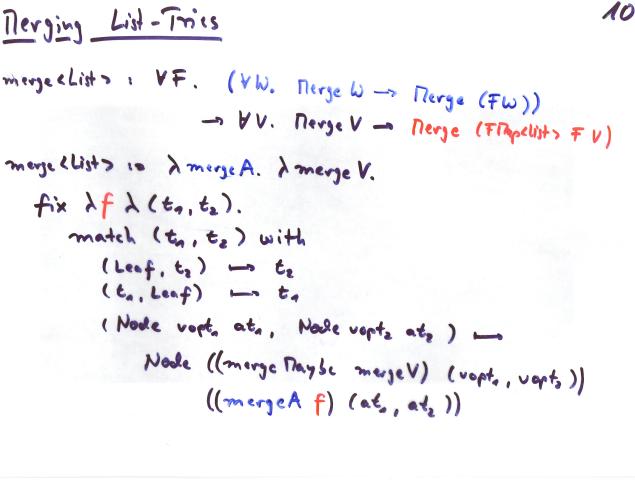 Merging List-Tries
10
merge<List> : ∀F. (∀W. Merge W → Merge (FW))
→ ∀V. Merge V → Merge (FMap<List> F V)
merge<List> = λ mergeA. λ mergeV.
fix λf λ(t₁, t₂).
match (t₁, t₂) with
(Leaf, t₂) ↦ t₂
(t₁, Leaf) ↦ t₁
(Node vopt₁ at₁, Node vopt₂ at₂) ↦
Node ((mergeMaybe mergeV) (vopt₁, vopt₂))
((mergeA f) (at₁, at₂))